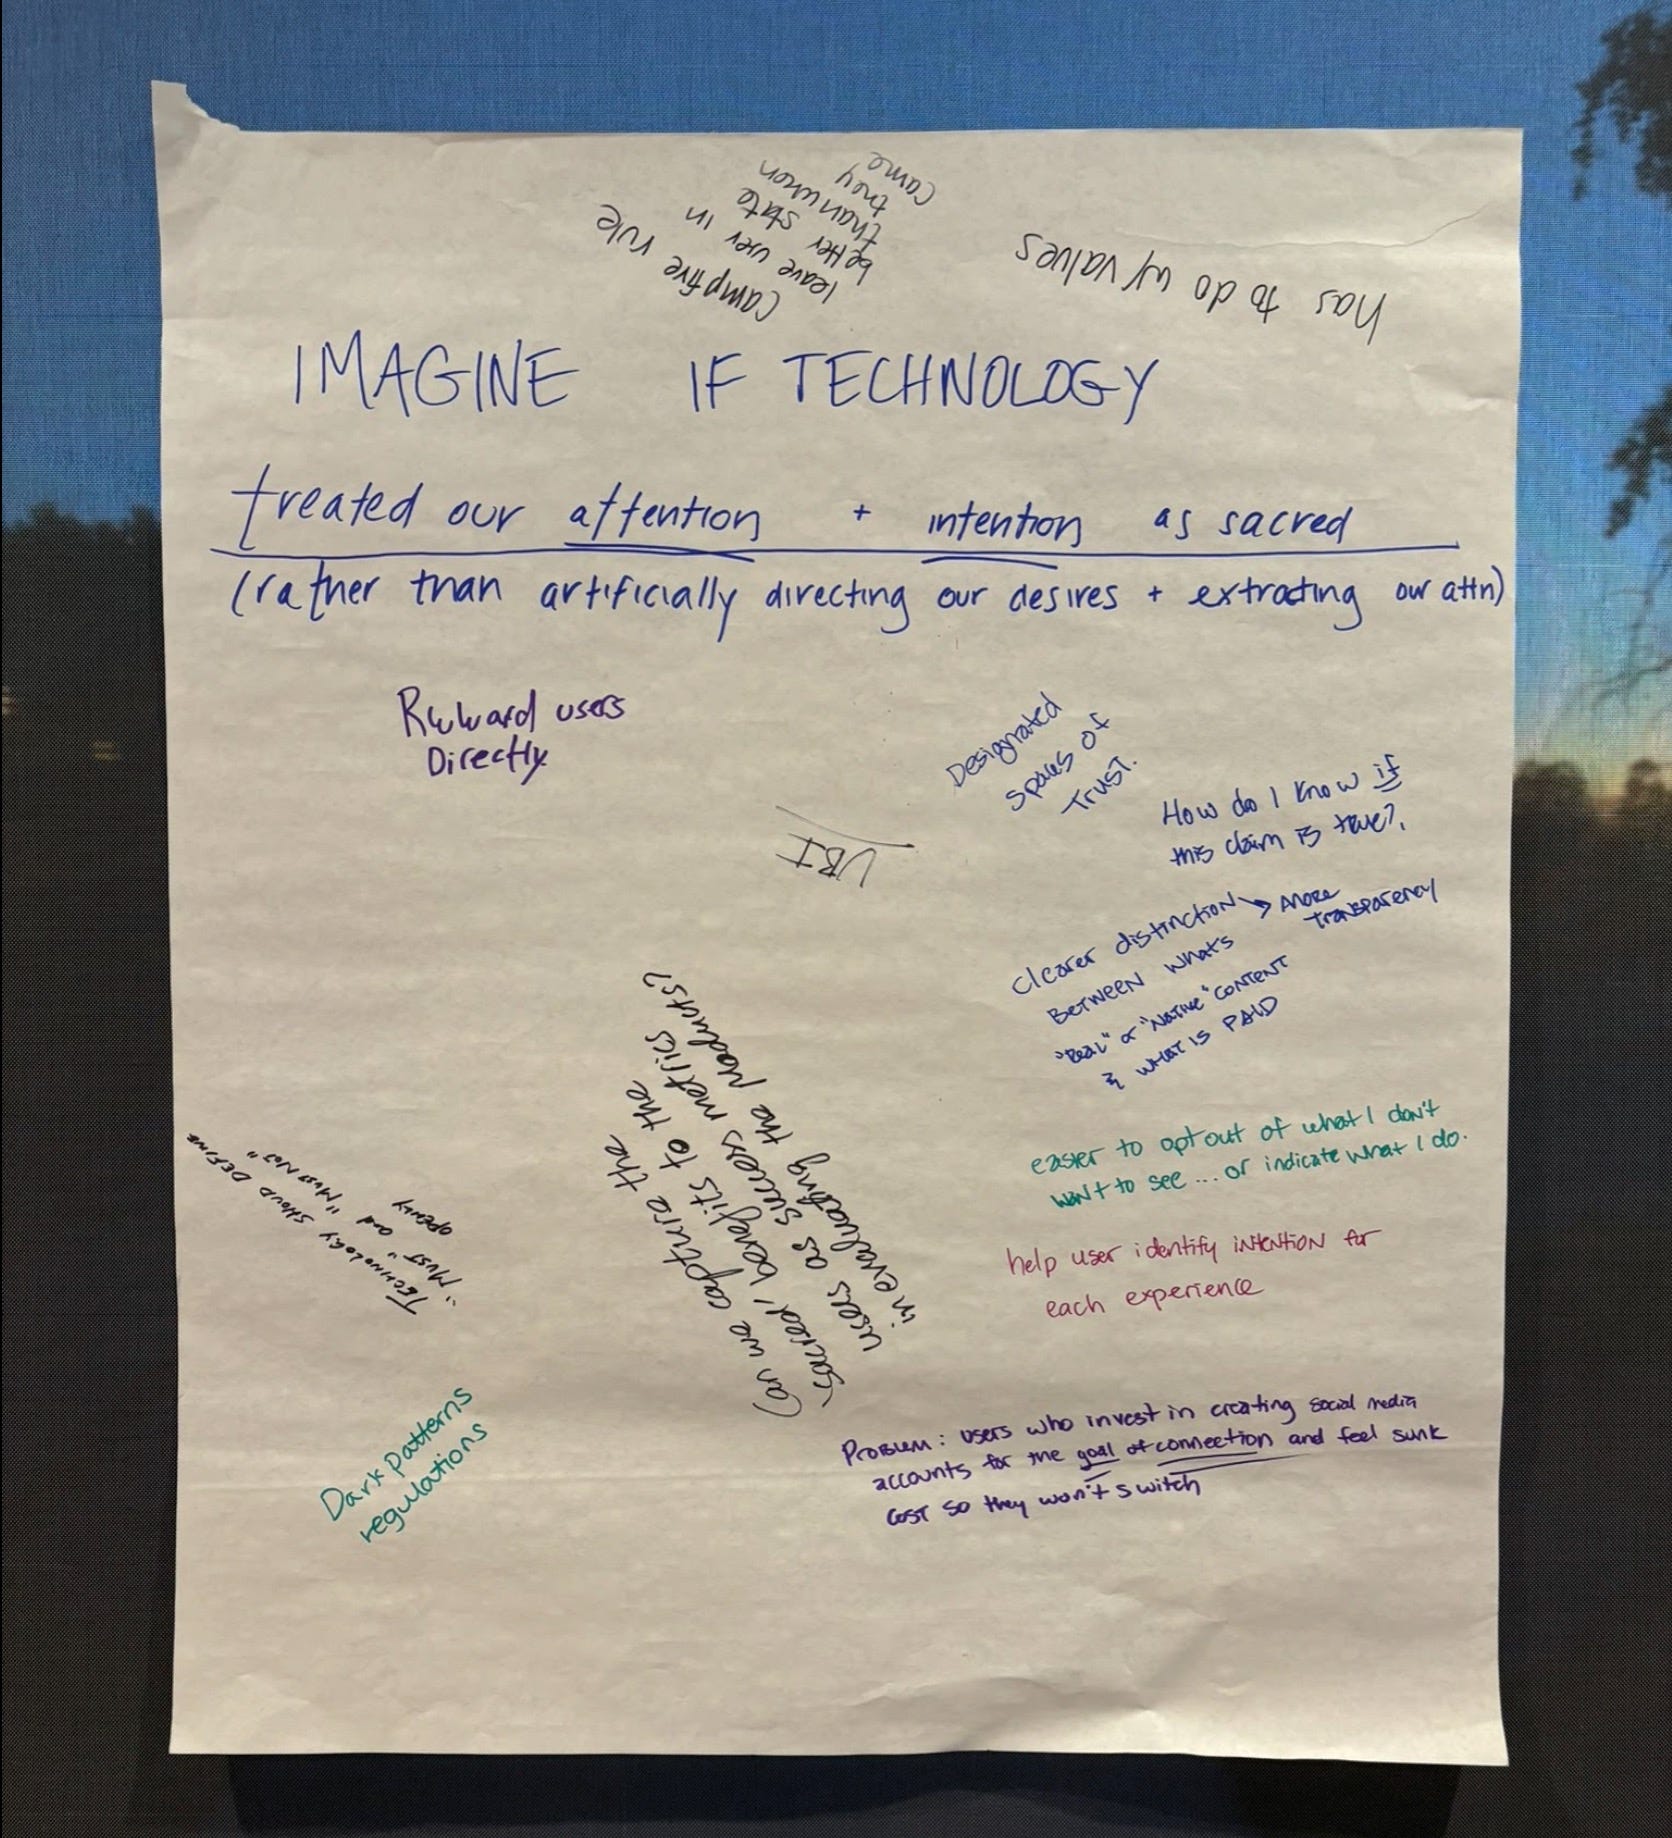 campfire rule
leave user in
better state
than when
they
came
has to do w/ values
IMAGINE IF TECHNOLOGY
treated our attention + intention as sacred
(rather than artificially directing our desires + extracting our attn)
Reward users
Directly
Designated
spaces of
Trust.
UBI
How do I know if
this claim is true?
Clearer distinction → more
transparency
Between what's
"Real" or "Native" content
& what is PAID
Can we capture the
'sacred' benefits to the
users as success metrics
in evaluating the products?
easier to opt out of what I don't
want to see ... or indicate what I do.
Technology should define
"Must" and "Must Not"
openly
help user identify intention for
each experience
Dark patterns
regulations
Problem: users who invest in creating social media
accounts for the goal of connection and feel sunk
cost so they won't switch